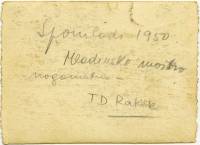 Spomladi 1950
Mladinsko moštvo
nogometa –
T D Rakek